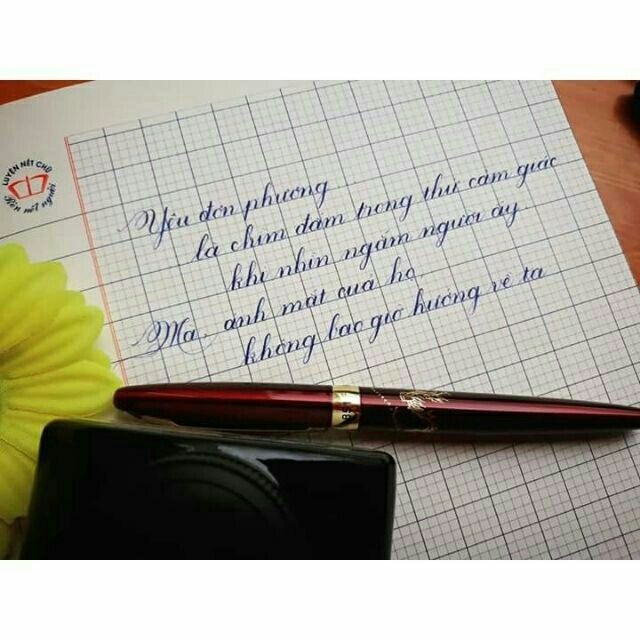 LUYỆN NÉT CHỮ
Rèn nết người
Yêu đơn phương
là chìm đắm trong thứ cảm giác
khi nhìn ngắm người ấy
Mà, ánh mắt của họ
không bao giờ hướng về ta